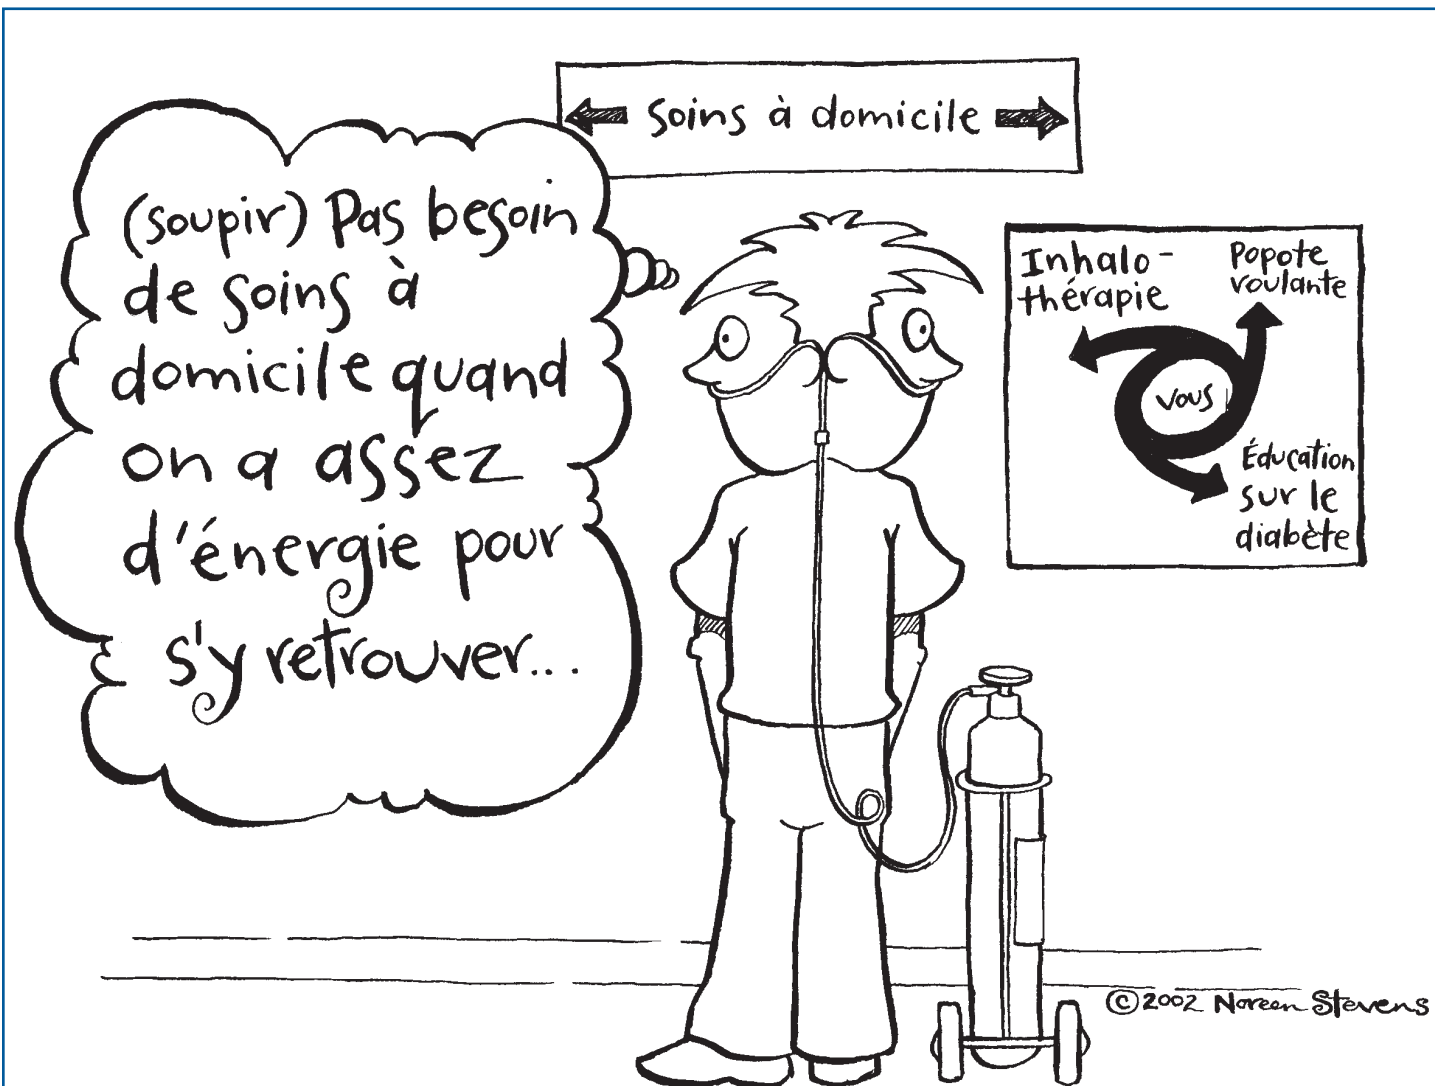 Soins à domicile
(soupir) Pas besoin
de soins à
domicile quand
on a assez
d'énergie pour
s'y retrouver...
Inhalo-
thérapie
Popote
voulante
vous
Éducation
sur le
diabète
©2002 Noreen Stevens